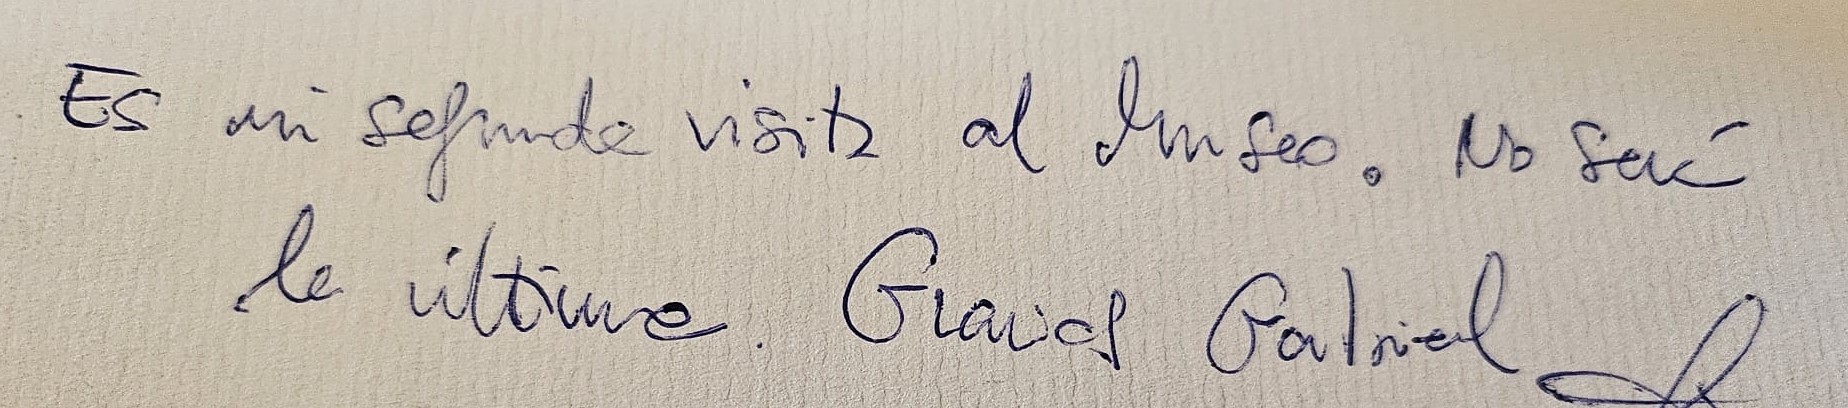 Es mi segunda visita al Museo. No será
la última. Gracias Gabriel